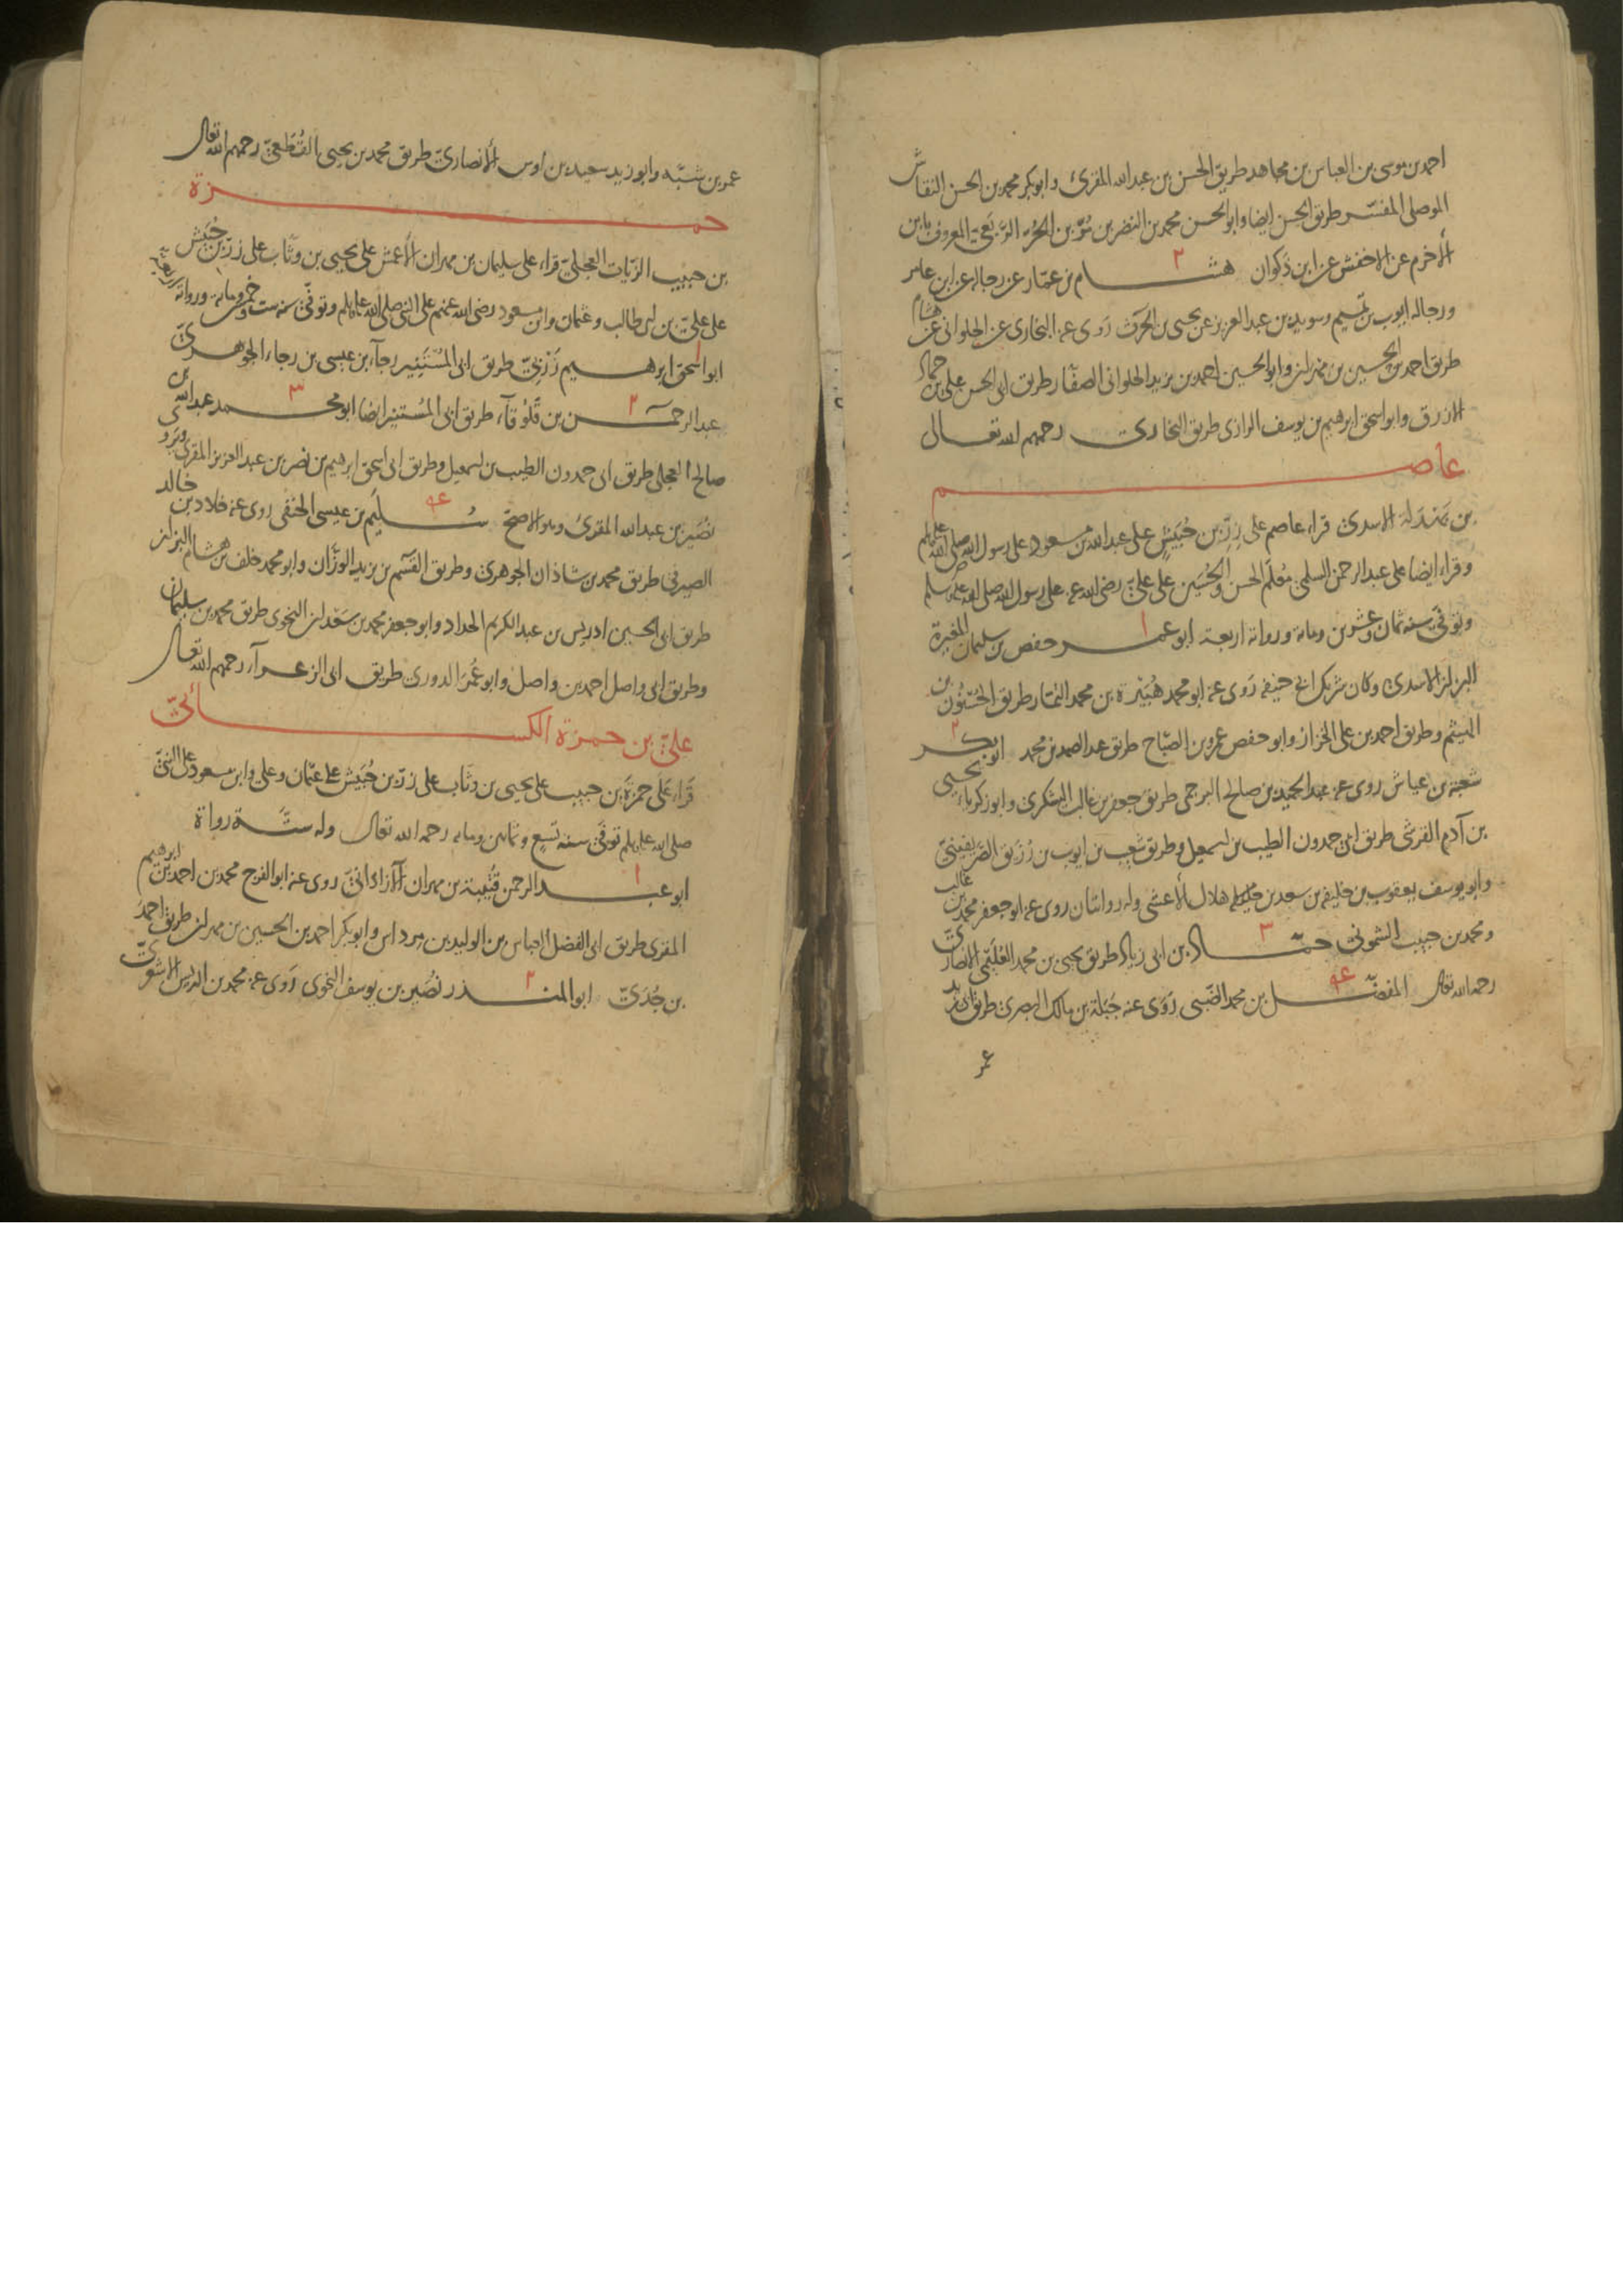 احمد بن موسى بن العباس بن مجاهد طريق الحسن بن عبد الله المقرئ وابو بكر محمد بن الحسن النقاش
الموصلى المفسّر طريق الحسن ايضا وابو الحسن محمد بن النضر بن مُرّ بن الحُرّ الرَّبَعىّ المعروف بابن
الأخرم عن الاخفش عن ابن ذَكوان ٢ هشام بن عمّار عن رجاله عن ابن عامر
ورجاله ايوب بن تميم وسويد بن عبد العزيز عن يحيى بن الحرث رَوى عنه البخارى عن الحلوانى عن هشام
طريق احمد بن الحسين بن مهران وابو الحسين احمد بن يزيد الحلوانى الصفّار طريق ابى الحسن على بن حماد
الازرق وابو اسحق ابرهيم بن يوسف الرازى طريق البخارى رحمهم الله تعالى
عاصم
بن بَهْدَلة الاسدى قراء عاصم على زِرّ بن حُبَيشٍ على عبد الله بن مسعود على رسول الله صلى الله عليه وسلم
وقراء ايضا على عبد الرحمن السلمى مُعلّم الحسن والحُسَين على علىّ رضى الله عنه على رسول الله صلى الله عليه وسلم
وتوفّى سنه ثمان وعشرين ومائة ورواته اربعة ١ ابو عمر حفص بن سليمان المغيرة
البزاز الاسدى وكان شريك ابى حنيفه رَوى عنه ابو محمد هُبَيْرة بن محمد التمّار طريق الحَسْنُون بن
الهيثم وطريق احمد بن على الخزاز وابو حفص عمرو بن الصبّاح طريق عبد الصمد بن محمد ٢ ابو بكر
شعبة بن عياش روى عنه عبد الحميد بن صالح البرجمى طريق جعفر بن غالب اليشكرى وابو زكرياء يحيى
بن آدم القرشى طريق ابى حمدون الطيب بن اسمعيل وطريق شعيب بن ايوب بن رُزَيق الصَّرِيفينىّ
وابو يوسف يعقوب بن خليفه بن سعد بن هلال الأعشى وله روايتان روى عنه ابو جعفر محمد بن غالب
ومحمد بن حبيب الشمونى ٣ حمّاد بن ابى زياد طريق يحيى بن محمد العُلَيمّى الانصارىّ
رحمه الله تعالى ٤ المفضّل بن محمد الضّبى رَوى عنه جَبَلة بن مالك البصرى طريق ابى زيد
عمر
عمر بن شبّه وابو زيد سعيد بن اوس الأنصارىّ طريق محمد بن يحيى القُطَعىّ رحمهم الله تعالى
حمزة
بن حبيب الزيّات العجلىّ قراء على سليمان بن مهران الأعمش على يحيى بن وثّاب على زرّ بن حُبَيش
على علىّ بن ابى طالب وعثمان وابن مسعود رضى الله عنهم على النبى صلى الله عليه وسلم وتوفّى سنه ست وخمسين ومائة ورواته اربعة
ابو اسحق ابرهيم زَرْبِىّ طريق ابى المُسْتَنِير رجآء بن عيسى بن رجاء الجوهرىّ
٢ عبد الرحمن بن قَلُوقَآء طريق ابى المُستنير ايضا ٣ ابو محمد عبد الله بن
صالح العجلى طريق ابى حمدون الطيب بن اسمعيل وطريق ابى اسحق ابرهيم بن نصر بن عبد العزيز المقرى ويروى
نُصَير بن عبد الله المقرئ وهو الاصحّ ٤ سُليَم بن عيسى الحنفى روى عنه خلاد بن خالد
الصيرفى طريق محمد بن شاذان الجوهرى وطريق القسم بن يزيد الوزّان وابو محمد خلف بن هشام البزاز
طريق ابى الحسين ادريس بن عبد الكريم الحداد وابو جعفر محمد بن سَعْدان النحوى طريق محمد بن سليمان
وطريق ابى واصل احمد بن واصل وابو عُمَر الدورى طريق ابى الزعرآء رحمهم الله تعالى
علىّ بن حمزة الكسائىّ
قَراء عَلى حمزةَ بن حبيب على يحيى بن وثّاب على زرّ بن حُبَيش على عثمان وعلى وابن مسعود على النبىّ
صلى الله عليه وسلم توفّى سنه تسع وثمانين ومايه رحمه الله تعالى وله ستّة رواة
١ ابو عبد الرحمن قُتَيبة بن مهران الآزاذانىّ روى عنه ابو الفرج محمد بن احمد بن ابرهيم
المقرى طريق ابى الفضل العباس بن الوليد بن مرداس وابو بكر احمد بن الحسين بن مهران طريق احمد
بن جُدَىّ ٢ ابو المنذر نُصَير بن يوسف النحوى رَوى عنه محمد بن ادريس الاشعرىّ